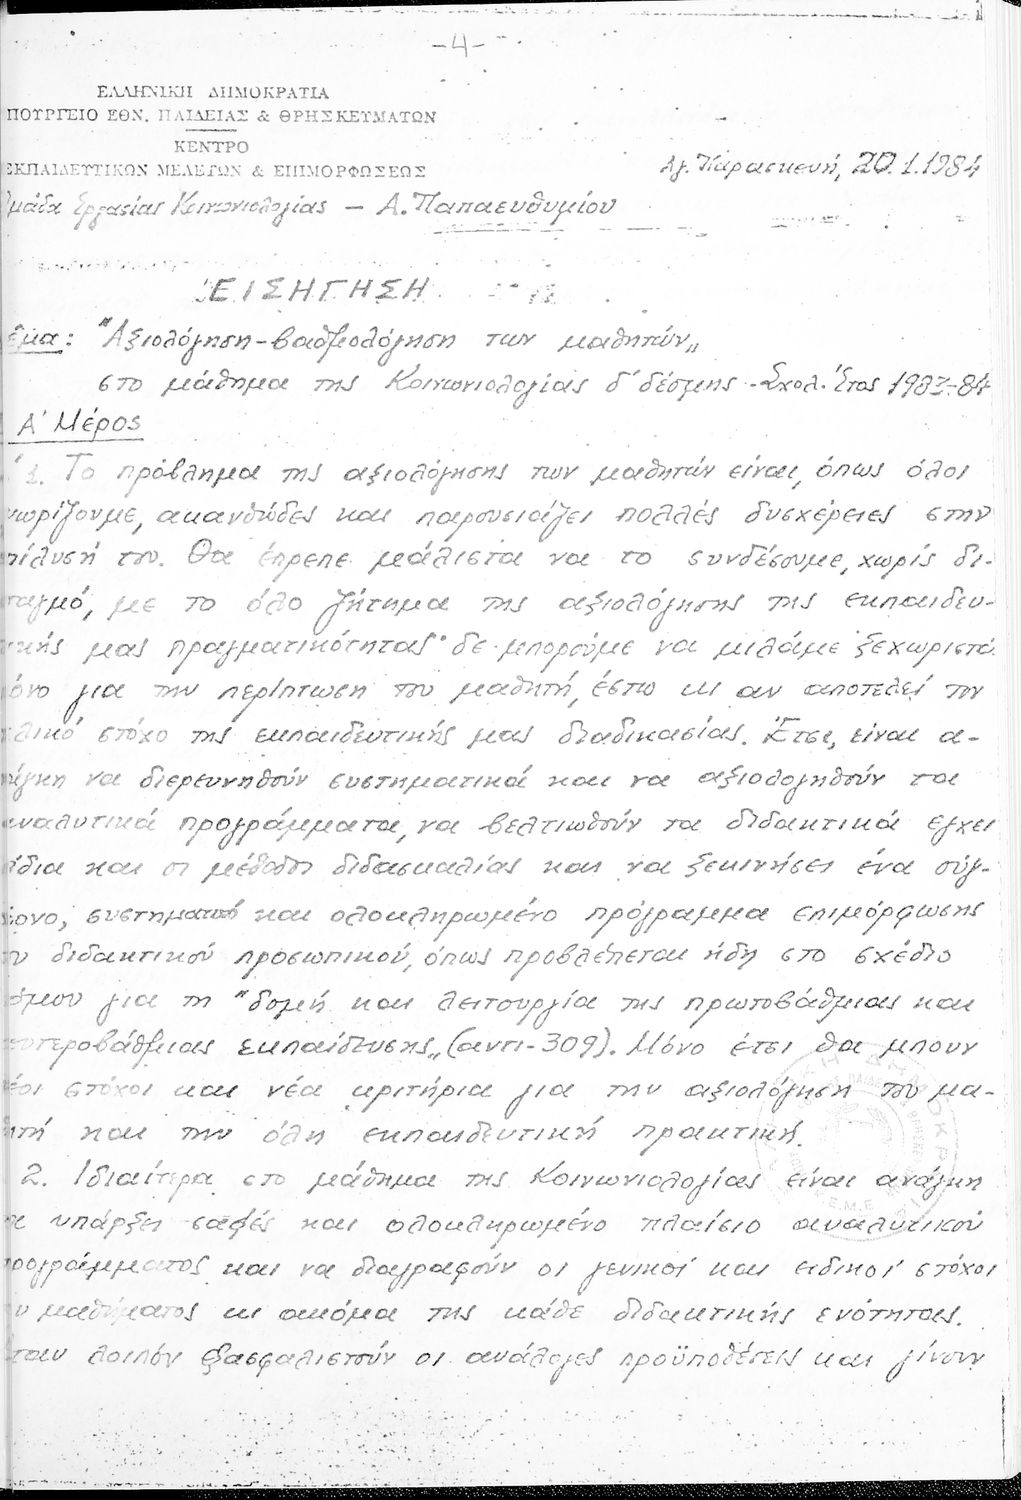 -4-
ΕΛΛΗΝΙΚΗ ΔΗΜΟΚΡΑΤΙΑ
ΠΟΥΡΓΕΙΟ ΕΘΝ. ΠΑΙΔΕΙΑΣ & ΘΡΗΣΚΕΥΜΑΤΩΝ
ΚΕΝΤΡΟ
ΕΚΠΑΙΔΕΥΤΙΚΩΝ ΜΕΛΕΤΩΝ & ΕΠΙΜΟΡΦΩΣΕΩΣ
Αγ. Παρασκευή, 20.1.1984
Ομάδα Εργασίας Κοινωνιολογίας - Α. Παπαευθυμίου
ΕΙΣΗΓΗΣΗ
έμα: "Αξιολόγηση-βαθμολόγηση των μαθητών„
στο μάθημα της Κοινωνιολογίας δ' δέσμης - Σχολ. Έτος 1983-84
Α' Μέρος
1. Το πρόβλημα της αξιολόγησης των μαθητών είναι, όπως όλοι
νωρίζουμε, ακανθώδες και παρουσιάζει πολλές δυσχέρειες στην
πίλυσή του. Θα έπρεπε μάλιστα να το συνδέσουμε, χωρίς δι-
ταγμό, με το όλο ζήτημα της αξιολόγησης της εκπαιδευ-
τικής μας πραγματικότητας· δε μπορούμε να μιλάμε ξεχωριστά
μόνο για την περίπτωση του μαθητή, έστω κι αν αποτελεί τον
λικό στόχο της εκπαιδευτικής μας διαδικασίας. Έτσι, είναι α-
νάγκη να διερευνηθούν συστηματικά και να αξιολογηθούν τα
αναλυτικά προγράμματα, να βελτιωθούν τα διδακτικά εγχει
ρίδια και οι μέθοδοι διδασκαλίας και να ξεκινήσει ένα σύγ-
χρονο, συστηματικό και ολοκληρωμένο πρόγραμμα επιμόρφωσης
ου διδακτικού προσωπικού, όπως προβλέπεται ήδη στο σχέδιο
νόμου για τη "δομή και λειτουργία της πρωτοβάθμιας και
ευτεροβάθμιας εκπαίδευσης„ (αντι-309). Μόνο έτσι θα μπουν
νέοι στόχοι και νέα κριτήρια για την αξιολόγηση του μα-
θητή και την όλη εκπαιδευτική πρακτική.
2. Ιδιαίτερα στο μάθημα της Κοινωνιολογίας είναι ανάγκη
να υπάρξει σαφές και ολοκληρωμένο πλαίσιο αναλυτικού
προγράμματος και να διαγραφούν οι γενικοί και ειδικοί στόχοι
ου μαθήματος κι ακόμα της κάθε διδακτικής ενότητας.
Όταν λοιπόν εξασφαλιστούν οι ανάλογες προϋποθέσεις και γίνουν